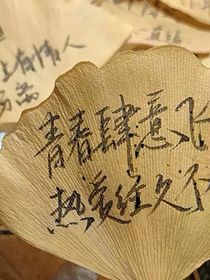 上有情人
青春肆意飞
热爱经久不